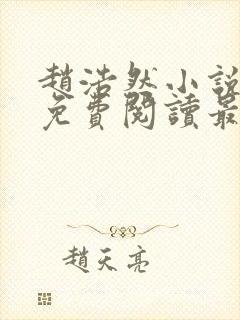 趙浩然小說
免費閱讀最
趙天亮